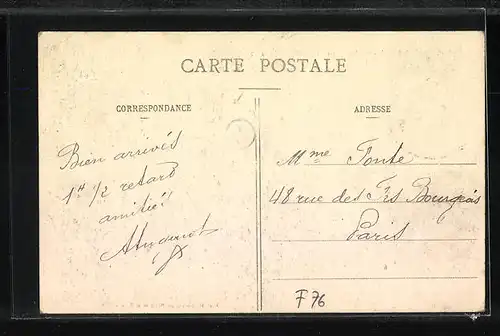 CARTE POSTALE
CORRESPONDANCE
Bien arrivés
1H 1/2 retard
amitiés
ADRESSE
Mme Fonte
48 rue des Frs Bourgeois
Paris
F 76